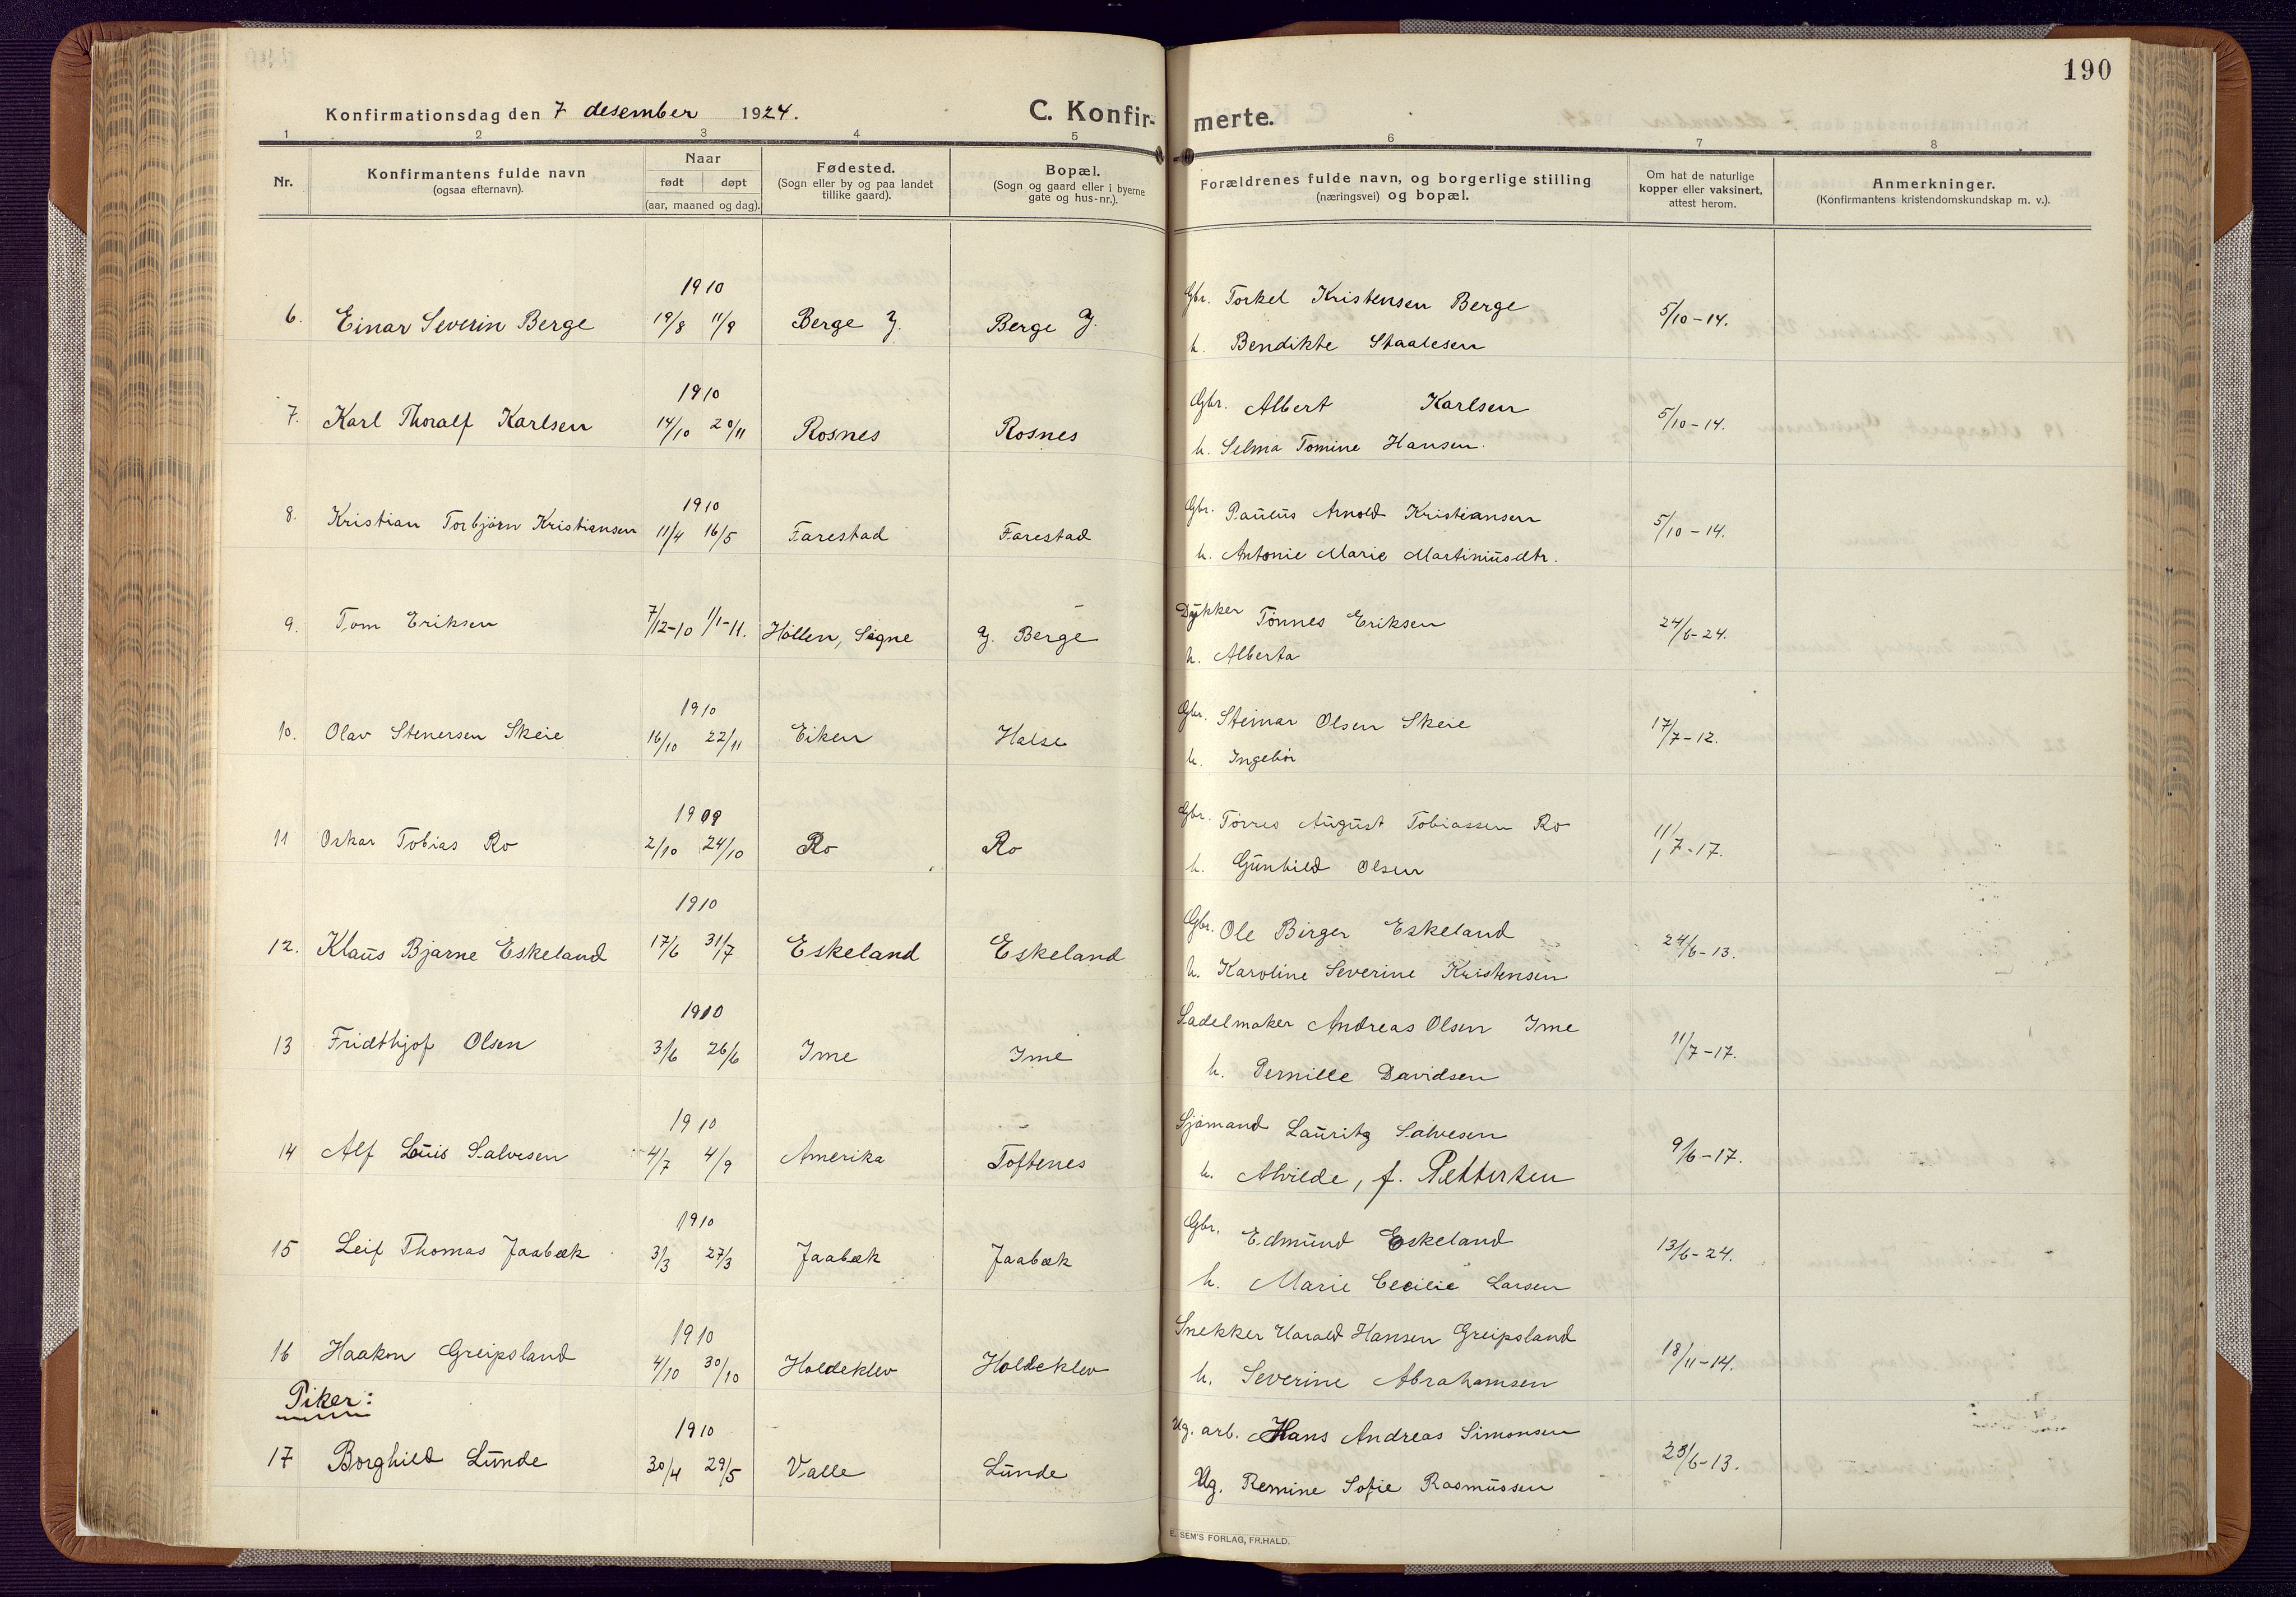 190
Konfirmationsdag den 7 desember 1924.
C. Konfir- merte.
1 2 3 4 5 6 7 8
Nr.
Konfirmantens fulde navn
(ogsaa efternavn).
Naar
født døpt
(aar, maaned og dag).
Fødested.
(Sogn eller by og paa landet
tillike gaard).
Bopæl.
(Sogn og gaard eller i byerne
gate og hus-nr.).
Forældrenes fulde navn, og borgerlige stilling
(næringsvei) og bopæl.
Om hat de naturlige
kopper eller vaksinert,
attest herom.
Anmerkninger.
(Konfirmantens kristendomskundskap m. v.).
1910
Gbr. Torkel Kristensen Berge
6. Einar Severin Berge 19/8 11/9 Berge Y. Berge Y. 5/10-14.
h. Bendikte Staalesen
1910
Gbr. Albert Karlsen
7. Karl Thoralf Karlsen 14/10 20/11 Rosnes Rosnes 5/10-14.
h. Selma Tomine Hansen.
1910
Gbr. Paulus Arnold Kristiansen
8. Kristian Torbjørn Kristiansen 11/4 16/5 Farestad Farestad 5/10-14.
h. Antonie Marie Martiniusdtr.
Dykker Tønnes Eriksen
9. Tom Eriksen 7/12-10 1/1-11. Høllen, Søgne Y. Berge 24/6-24.
h. Alberta
1910
Gbr. Steinar Olsen Skeie
10. Olav Stenersen Skeie 16/10 22/11 Eiken Halse 17/7-12.
h. Ingebor
1909
Gbr. Torres August Tobiassen Ro
11 Oskar Tobias Ro 2/10 24/10 Ro Ro 11/7-17.
h. Gunhild Olsen
1910
Gbr. Ole Birger Eskeland
12. Klaus Bjarne Eskeland 17/6 31/7 Eskeland Eskeland 24/6-13.
h. Karoline Severine Kristensen
1910
Sadelmaker Andreas Olsen Ime
13 Fridthjof Olsen 3/6 26/6 Ime Ime 11/7-17.
h. Pernille Davidsen
1910
Sjømand Lauritz Salvesen
14 Alf Louis Salvesen 4/7 4/9 Amerika Toftenes 9/6-17.
h. Alvilde, f. Pettersen
1910
Gbr. Edmund Eskeland
15 Leif Thomas Jaabæk 3/3 27/3 Jaabæk Jaabæk 13/6-24.
h. Marie Cecilie Larsen
1910
Snekker Harald Hansen Greipsland
16 Haakon Greipsland 4/10 30/10 Holdeklev Holdeklev 18/11-14.
h. Severine Abrahamsen
Piker:
1910
Ug. arb. Hans Andreas Simonsen
17 Borghild Lunde 30/4 29/5 Valle Lunde 23/6-13.
Ug. Remine Sofie Rasmussen
E. SEM'S FORLAG, FR.HALD.